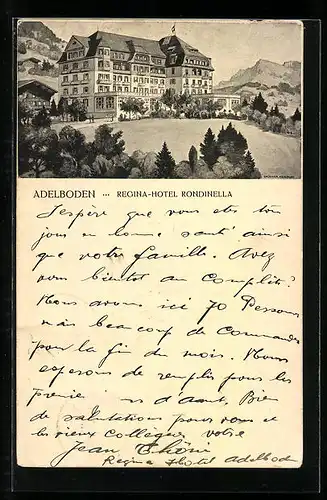 ADELBODEN ... REGINA-HOTEL RONDINELLA
J'espère que vous ets tou
jours en bonne santé ainsi
que votre famille. Avez
vous bientôt au complèt?
Nous avons ici 70 Personnes
mais beaucoup de Commandes
pour la fin du mois. Nous
esperons de remplir pour les
premie rs d'aout. Bien
de salutations pour vous et
les vieux collègues votre
Jean
Regina Hotel Adelboden